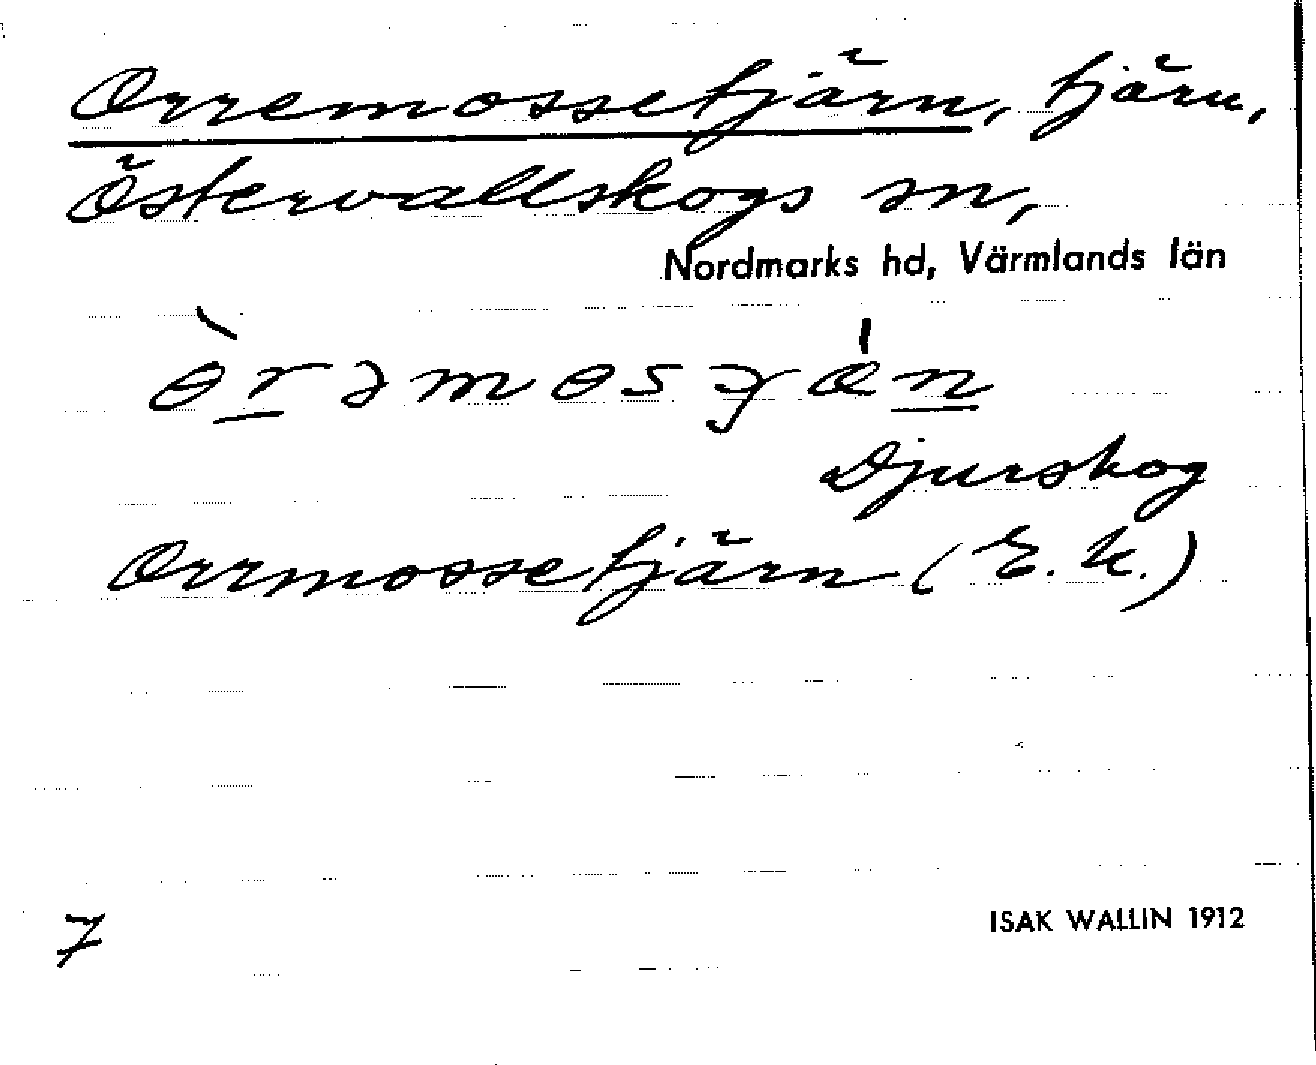 Orremossetjärn, tjärn,
Östervallskogs sn,
Nordmarks hd, Värmlands län
Djurskog
Orrmossetjärn (E. K.)
7
ISAK WALLIN 1912